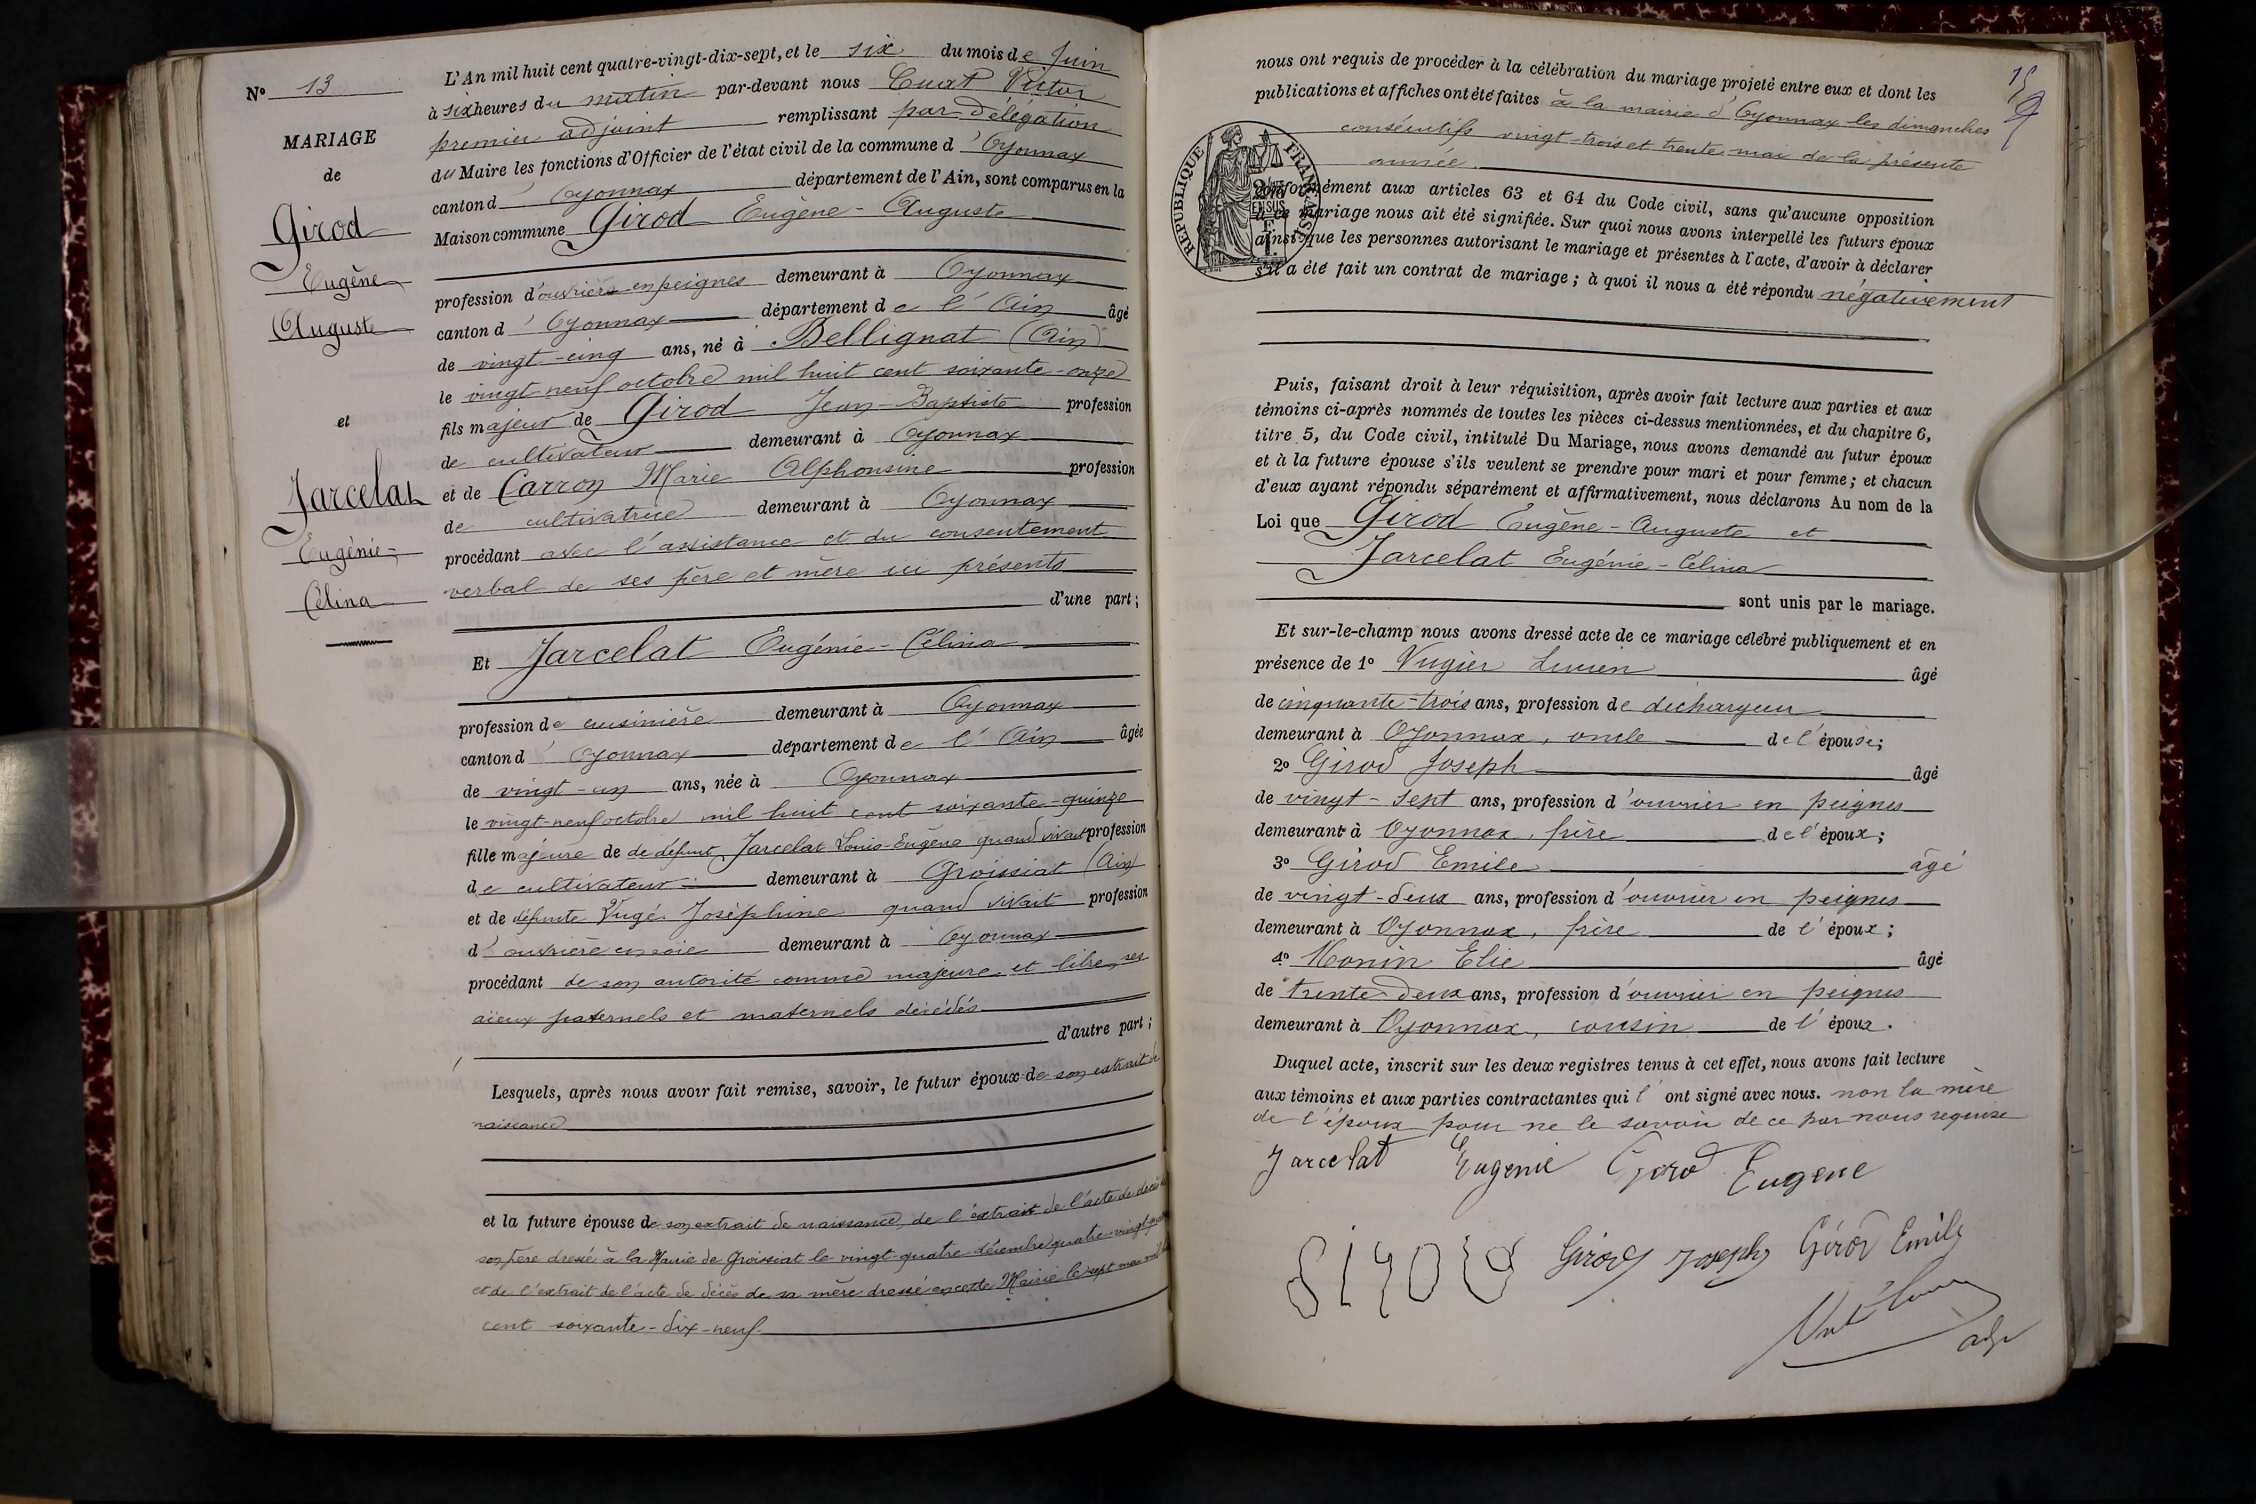 N° 13
MARIAGE
de
Girod
Eugène
Auguste
et
Jarcelat
Eugénie-
Célina
L'An mil huit cent quatre-vingt-dix-sept, et le six du mois de Juin
à six heures du matin par-devant nous Cuaz Victor
premier adjoint remplissant par Délégation
du Maire les fonctions d'Officier de l'état civil de la commune d'Oyonnax
canton d'Oyonnax département de l'Ain, sont comparus en la
Maison commune Girod Eugène-Auguste
profession d'ouvrier en peignes demeurant à Oyonnax
canton d'Oyonnax département de l'Ain âgé
de vingt-cinq ans, né à Bellignat (Ain)
le vingt-neuf octobre mil huit cent soixante-onze
fils majeur de Girod Jean-Baptiste profession
de cultivateur demeurant à Oyonnax
et de Carron Marie Alphonsine profession
de cultivatrice demeurant à Oyonnax
procédant avec l'assistance et du consentement
verbal de ses père et mère ici présents
d'une part;
Et Jarcelat Eugénie-Célina
profession de cuisinière demeurant à Oyonnax
canton d'Oyonnax département de l'Ain âgée
de vingt-un ans, née à Oyonnax
le vingt-neuf octobre mil huit cent soixante-quinze
fille majeure de de défunt Jarcelat Louis-Eugène quand vivait profession
de cultivateur demeurant à Groissiat (Ain)
et de défunte Vugé Joséphine quand vivait profession
d'ouvrière en soie demeurant à Oyonnax
procédant de son autorité comme majeure et libre, ses
aïeux paternels et maternels décédés
d'autre part;
Lesquels, après nous avoir fait remise, savoir, le futur époux de son extrait de
naissance
et la future épouse de son extrait de naissance, de l'extrait de l'acte de décès de
son père dressé à la Mairie de Groissiat le vingt-quatre décembre quatre-vingt-
et de l'extrait de l'acte de décès de sa mère dressé en cette Mairie le sept mai mil huit
cent soixante-dix-neuf.
nous ont requis de procéder à la célébration du mariage projeté entre eux et dont les
publications et affiches ont été faites à la mairie d'Oyonnax les dimanches
consécutifs vingt-trois et trente mai de la présente
année
RÉPUBLIQUE FRANÇAISE
conformément aux articles 63 et 64 du Code civil, sans qu'aucune opposition
à ce mariage nous ait été signifiée. Sur quoi nous avons interpellé les futurs époux
ainsi que les personnes autorisant le mariage et présentes à l'acte, d'avoir à déclarer
s'il a été fait un contrat de mariage; à quoi il nous a été répondu négativement
Puis, faisant droit à leur réquisition, après avoir fait lecture aux parties et aux
témoins ci-après nommés de toutes les pièces ci-dessus mentionnées, et du chapitre 6,
titre 5, du Code civil, intitulé Du Mariage, nous avons demandé au futur époux
et à la future épouse s'ils veulent se prendre pour mari et pour femme; et chacun
d'eux ayant répondu séparément et affirmativement, nous déclarons Au nom de la
Loi que Girod Eugène-Auguste et
Jarcelat Eugénie-Célina
sont unis par le mariage.
Et sur-le-champ nous avons dressé acte de ce mariage célébré publiquement et en
présence de 1° Vugier Lucien âgé
de cinquante-trois ans, profession de déchargeur
demeurant à Oyonnax, oncle de l'épouse;
2° Girod Joseph âgé
de vingt-sept ans, profession d'ouvrier en peignes
demeurant à Oyonnax, frère de l'époux;
3° Girod Emile âgé
de vingt-deux ans, profession d'ouvrier en peignes
demeurant à Oyonnax, frère de l'époux;
4° Monin Elie âgé
de trente-deux ans, profession d'ouvrier en peignes
demeurant à Oyonnax, cousin de l'époux.
Duquel acte, inscrit sur les deux registres tenus à cet effet, nous avons fait lecture
aux témoins et aux parties contractantes qui l'ont signé avec nous. non la mère
de l'époux pour ne le savoir de ce par nous requise
Jarcelat Eugenie Girod Eugene
Girod Joseph Girod Emile
adjt